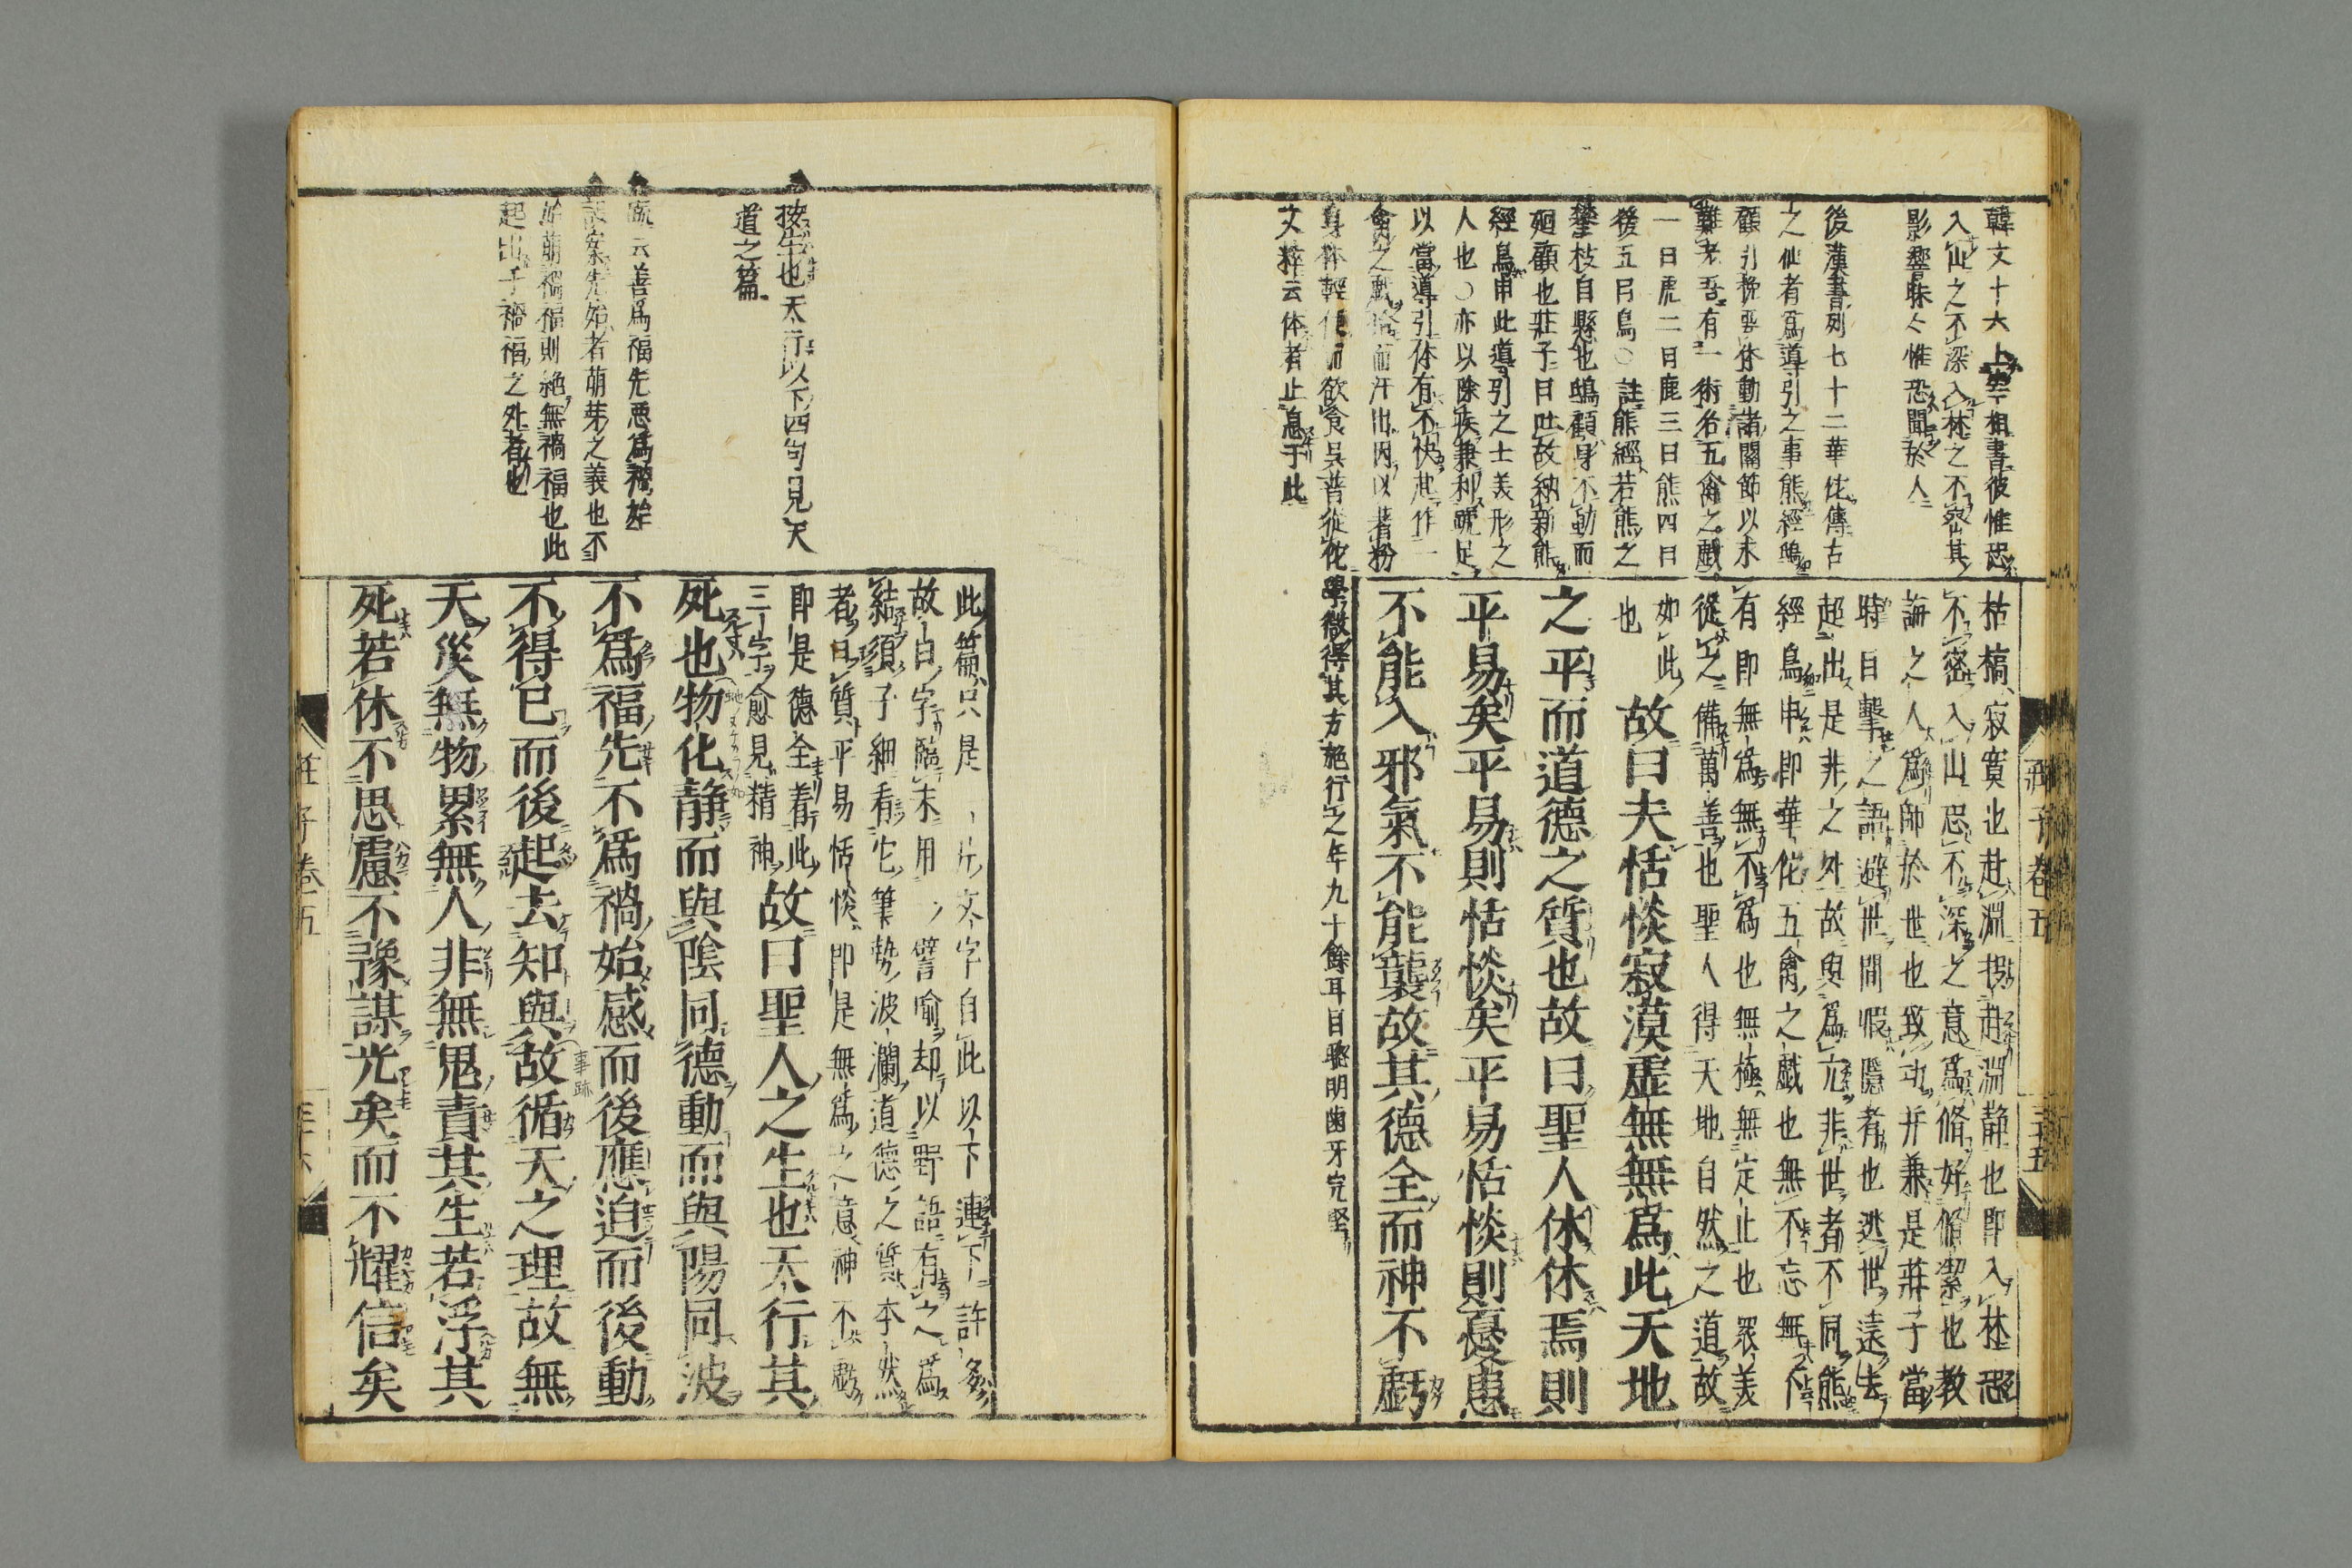 韓文十六上宰相書彼惟恐
入山之不深入林之不密其
影響昧々惟恐聞於人
後漢書列七十二華佗傳古
之仙者爲導引之事熊經鴟
顧引挽要体動諸關節以求
難老吾有一術名五禽之戯
一曰虎二曰鹿三曰熊四曰
後五曰鳥○註熊經若熊之
攀枝自懸也鴟顧身不動而
廻顧也莊子曰吐故納新熊
經鳥申此導引之士羙形之
人也○亦以除疾兼利蹏足
以當導引体有不快起作一
禽之戯怡而汗出因以著粉
身体輕便而欲食呉普從佗
學微得其方施行之年九十餘耳目聦明歯牙完堅
文粹云体者止息于此
枯槁寂寞也赴淵投赴淵静也即入林恐
不密入山恐不深之意爲脩好脩潔也教
誨之人爲師於世也致功并兼是莊子當
時目擊之語避世間暇隱者也逃世遠去
超出是非之外故與爲亢非世者不同熊
經鳥申即華佗五禽之戯也無不忘無不
有即無爲無不爲也無極無定止也衆羙
從之備萬善也聖人得天地自然之道故
如此
也
故曰夫恬惔寂漠虚無無爲此天地
之平而道德之質也故曰聖人休休焉則
平易矣平易則恬惔矣平易恬惔則憂患
不能入邪氣不能襲故其德全而神不虧
卷五
三十五
按生也天行以下四句見天
道之篇
云善爲福先悪爲禍始
案先始者萌芽之義也不
始萌禍福則絶無禍福也此
起出于禍福之外者也
此篇只是一片文字自此以下連下許多
故曰字臨末用一譬喩却以野語有之爲
結須子細看它筆勢波瀾道德之質本然
者曰質平易恬惔即是無爲之意神不虧
即是德全着此
三字愈見精神
故曰聖人之生也天行其
死也物化静而與陰同德動而與陽同波
不爲福先不爲禍始感而後應迫而後動
不得已而後起去知與故循天之理故無
事跡
天災無物累無人非無鬼責其生若浮其
死若休不思慮不豫謀光矣而不耀信矣
莊子卷五